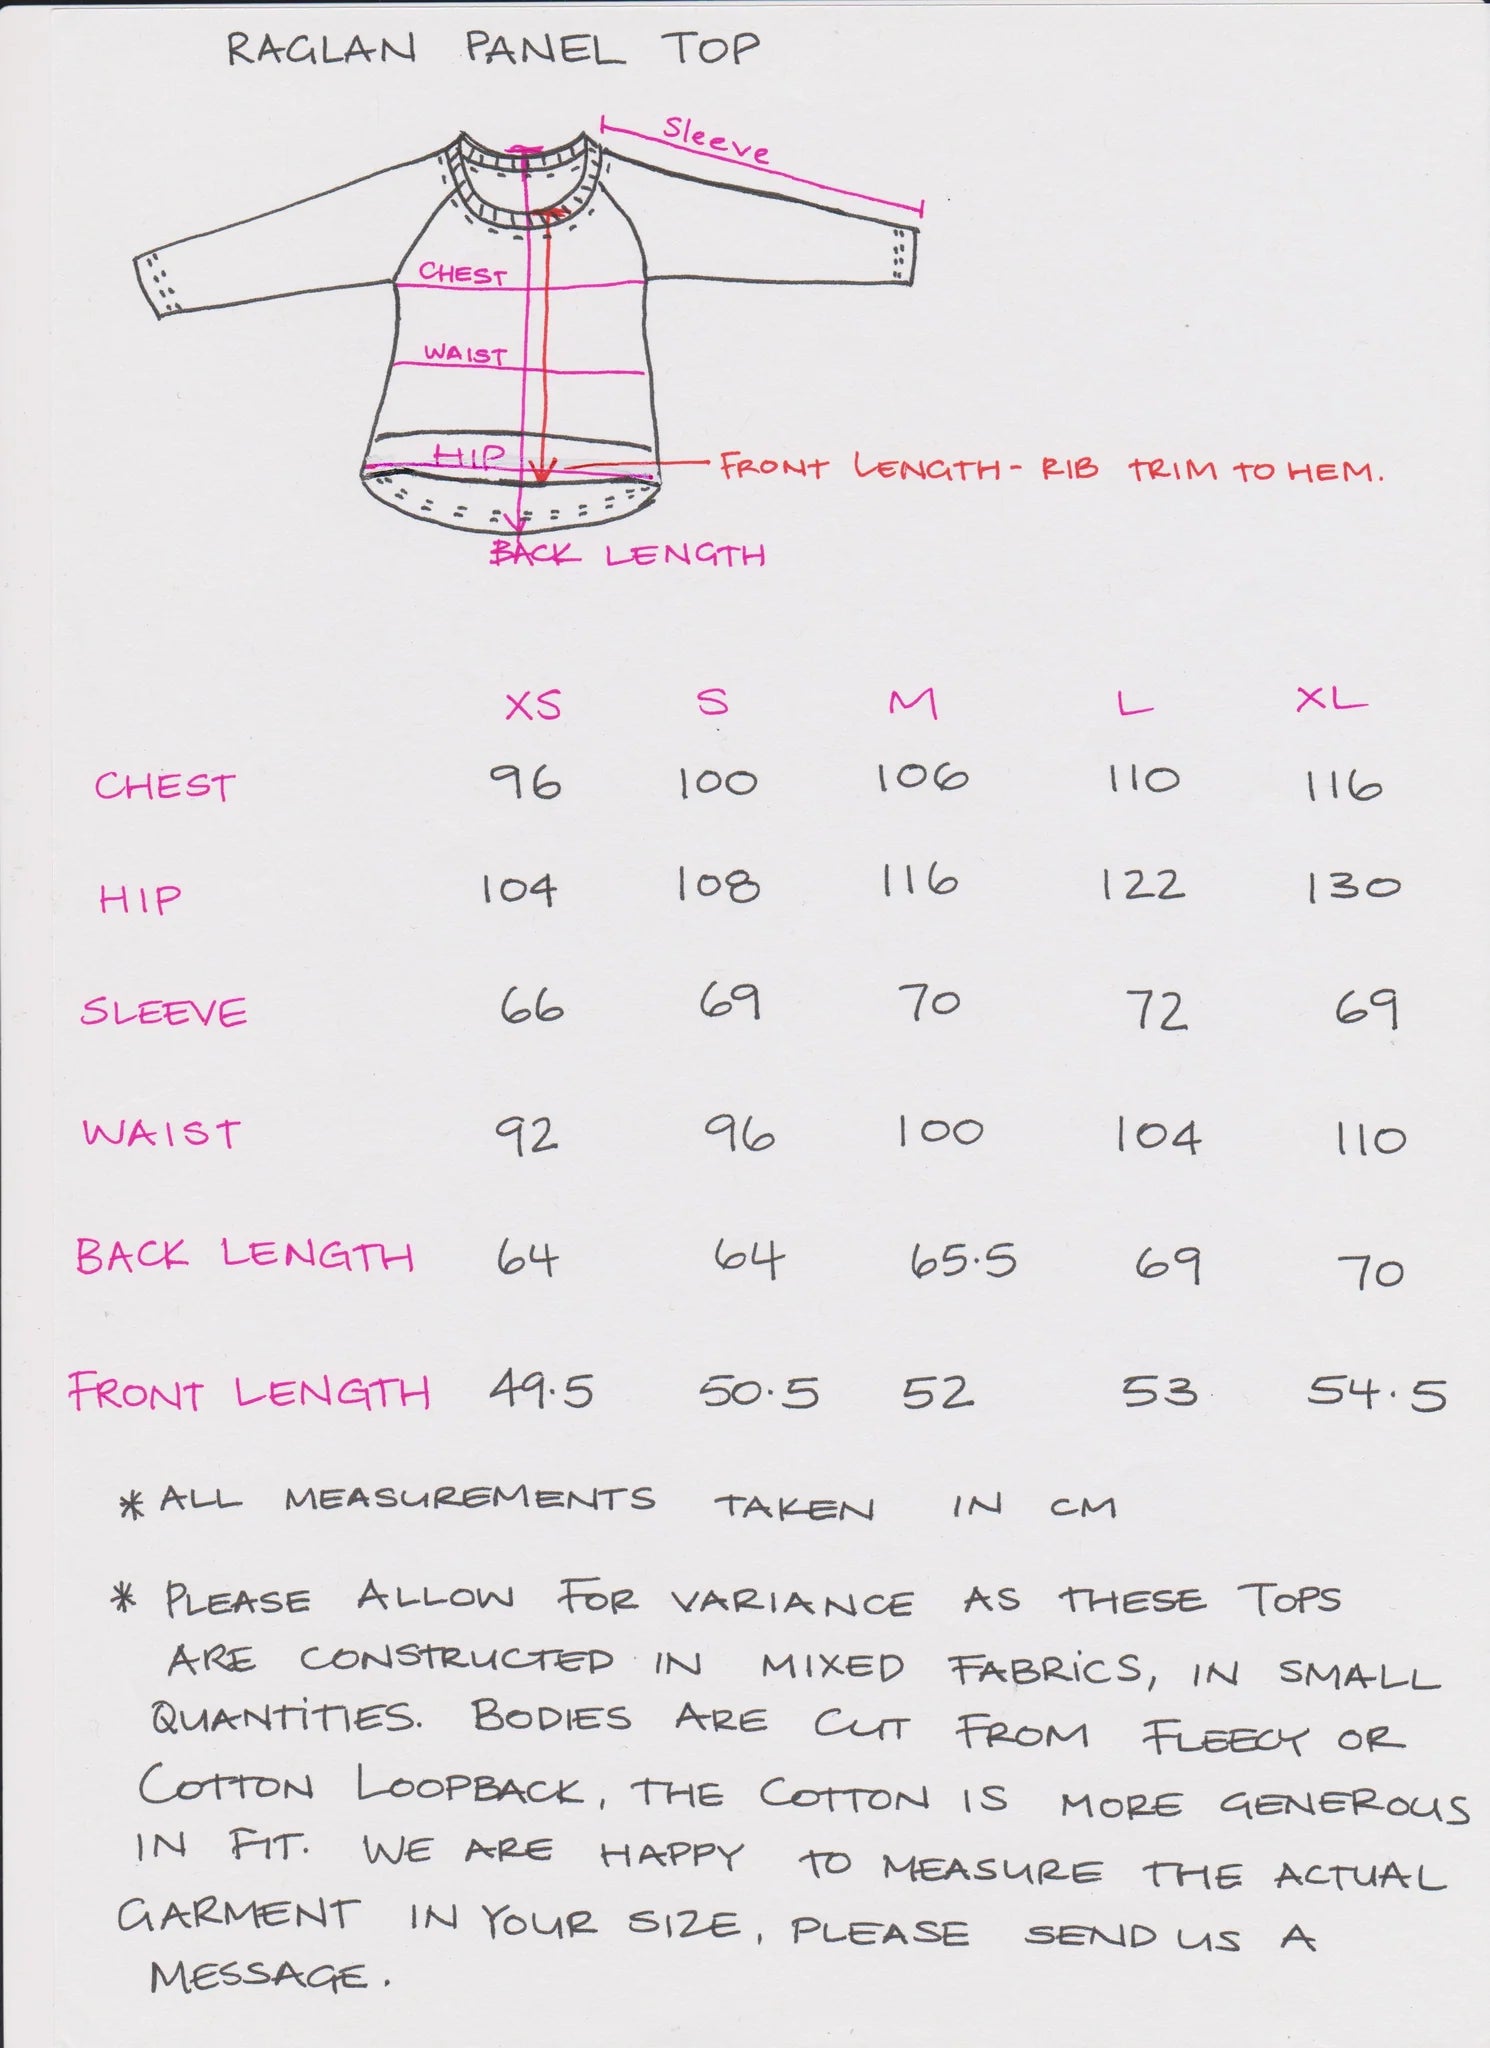 RAGLAN PANEL TOP
Sleeve
CHEST
WAIST
HIP
FRONT LENGTH - RIB TRIM TO HEM.
BACK LENGTH
XS S M L XL
CHEST 96 100 106 110 116
HIP 104 108 116 122 130
SLEEVE 66 69 70 72 69
WAIST 92 96 100 104 110
BACK LENGTH 64 64 65.5 69 70
FRONT LENGTH 49.5 50.5 52 53 54.5
* ALL MEASUREMENTS TAKEN IN CM
* PLEASE ALLOW FOR VARIANCE AS THESE TOPS
ARE CONSTRUCTED IN MIXED FABRICS, IN SMALL
QUANTITIES. BODIES ARE CUT FROM FLEECY OR
COTTON LOOPBACK, THE COTTON IS MORE GENEROUS
IN FIT. WE ARE HAPPY TO MEASURE THE ACTUAL
GARMENT IN YOUR SIZE, PLEASE SEND US A
MESSAGE.